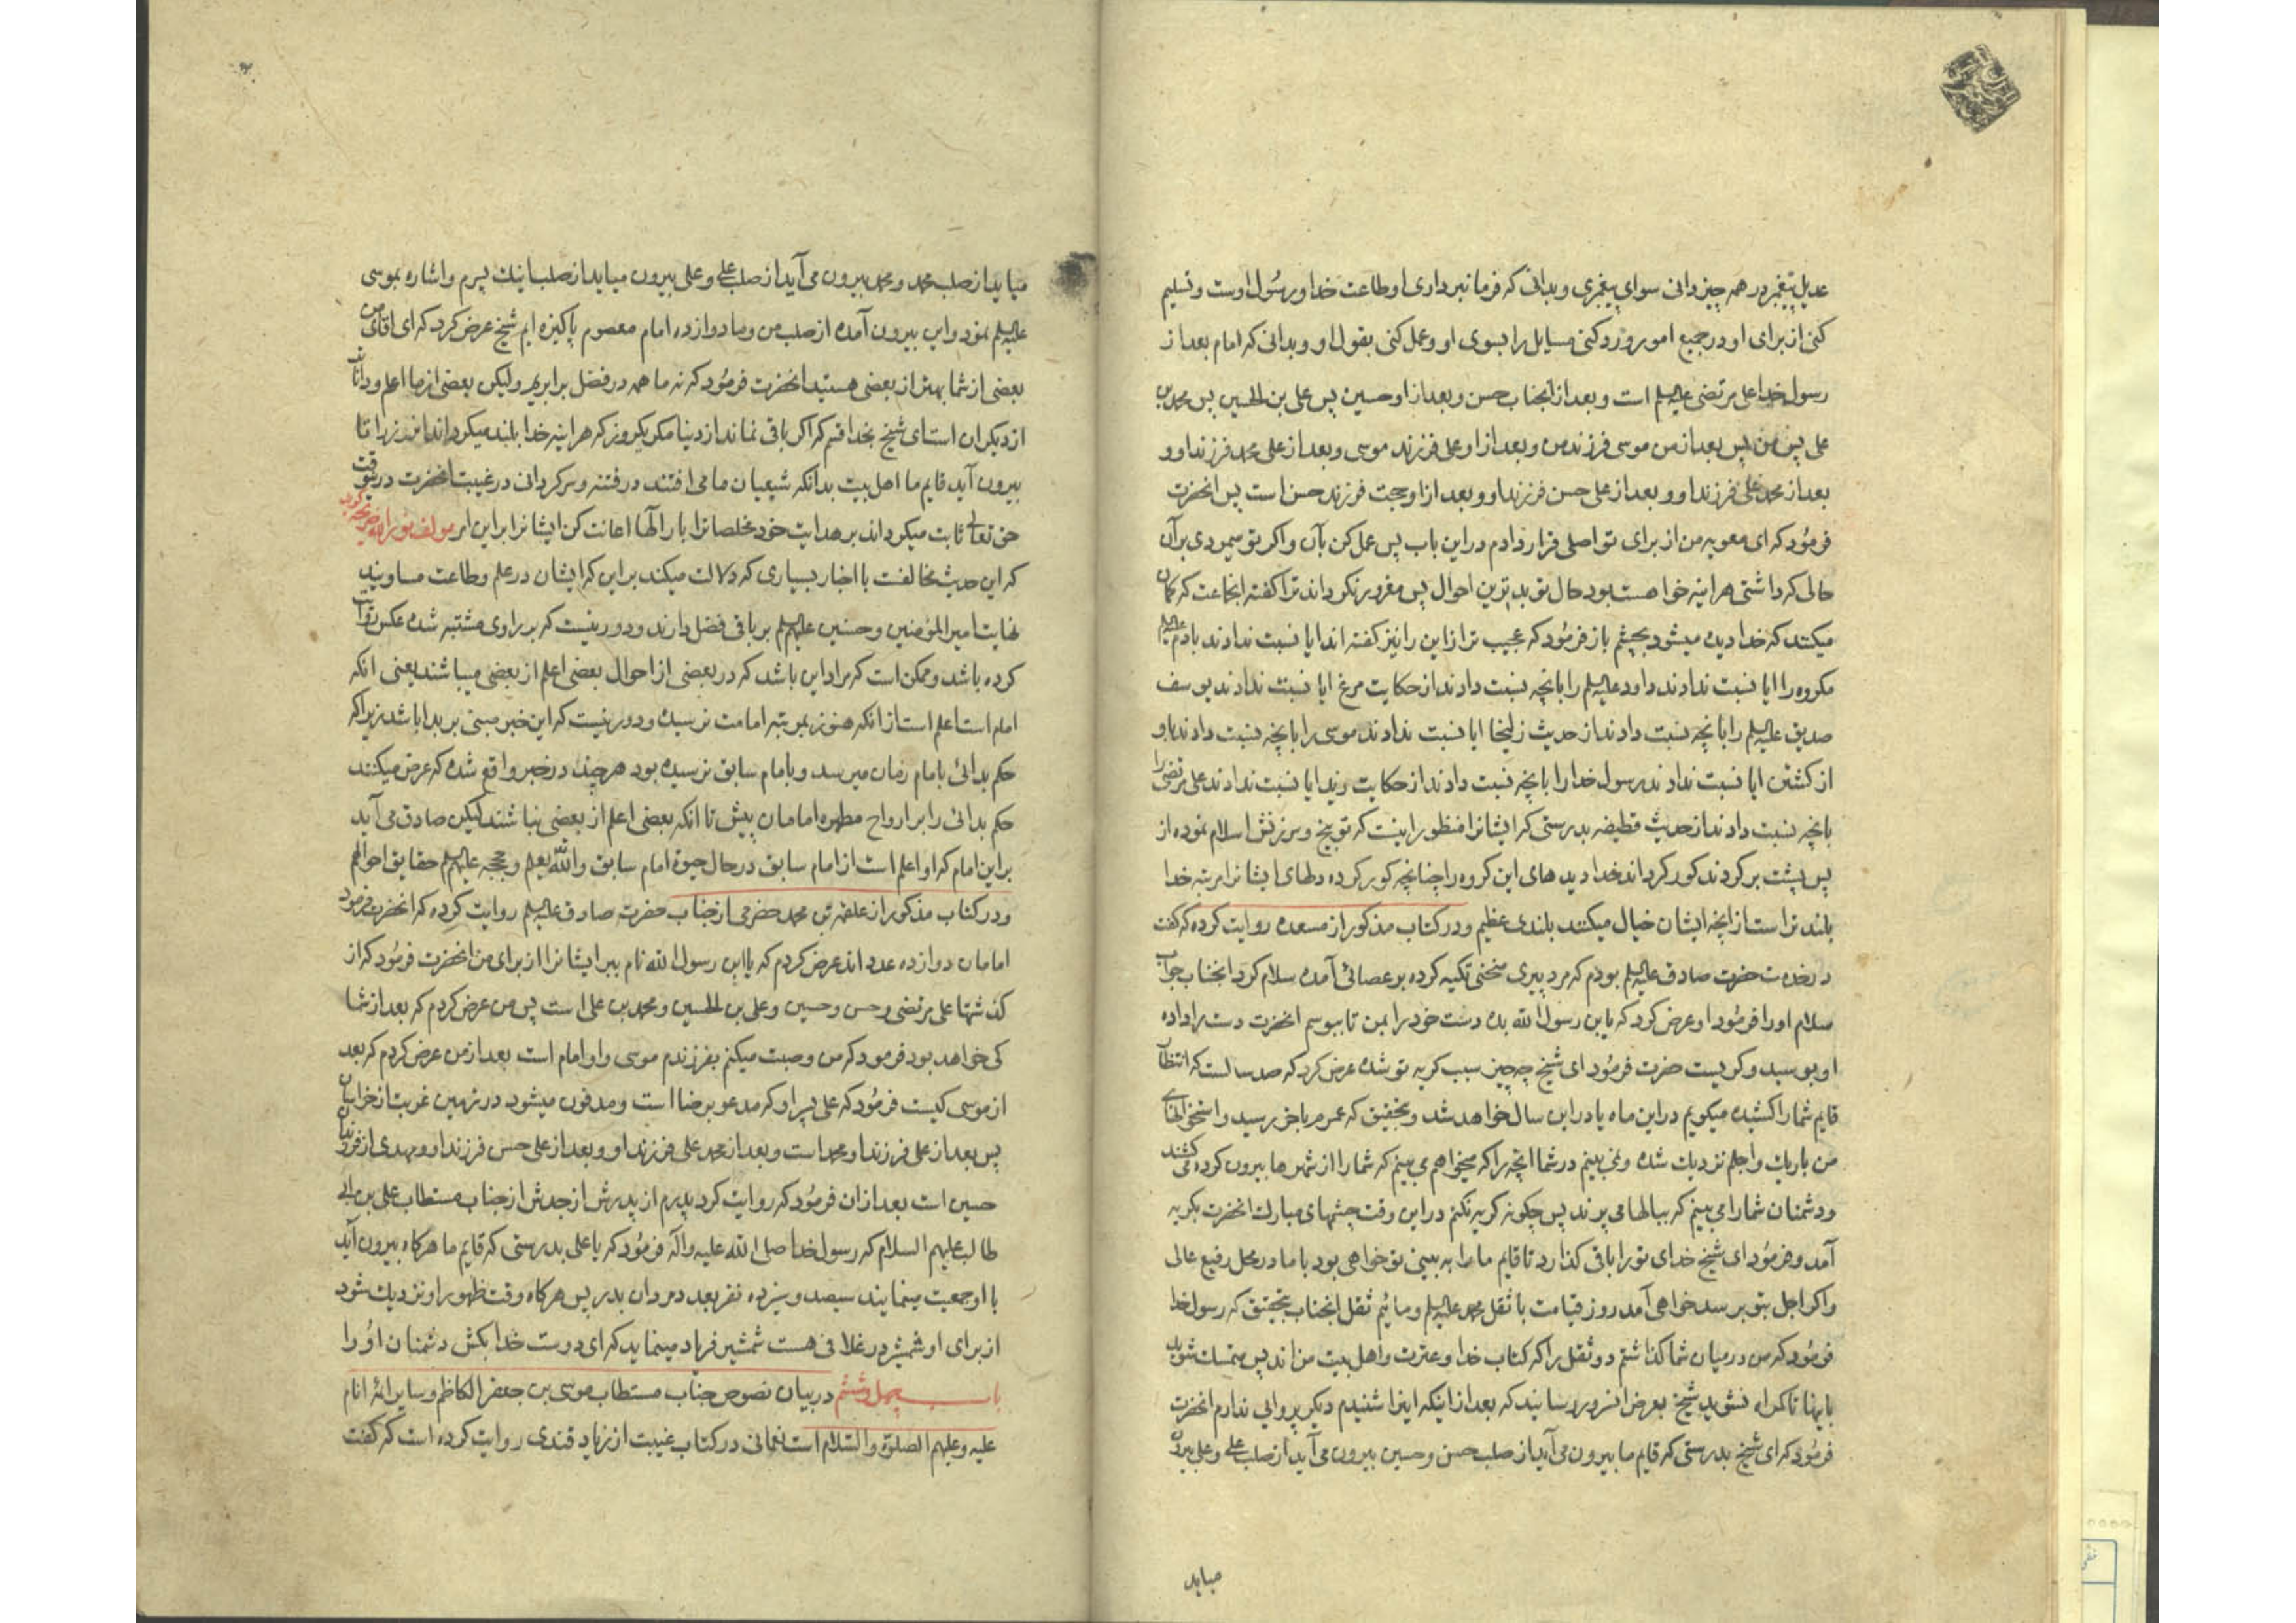 عدیل پیغمبر در همه چیز دانی سوای پیغمبری و بدانی که فرمانبرداری او طاعت خدا و رسول اوست و تسلیم
کنی از برای او در جمیع امور و رد کنی مسایل را بسوی او و عمل کنی بقول او و بدانی که امام بعد از
رسول خدا علی مرتضی علیه السلم است و بعد از آنجناب حسن و بعد از او حسین پس علی بن الحسین پس محمد بن
علی پس من پس بعد از من موسی فرزند من و بعد از او علی فرزند موسی و بعد از علی محمد فرزند او و
بعد از محمد علی فرزند او و بعد از علی حسن فرزند او و بعد از او حجت فرزند حسن است پس انحضرت
فرمود که ای معویه من از برای تو اصلی قرار دادم در این باب پس عمل کن بآن و اکر تو میمردی بر آن
حالی که داشتی هر اینه خواهست بود حال تو بدترین احوال پس مغرور نکرداند ترا کفته انجماعت که کمان
میکنند که خدا دیده میشود بچشم باز فرمود که عجیب تر از این را نیز کفته اند ایا نسبت ندادند بادم علیه السلم
مکروه را ایا نسبت ندادند داود علیه السلم را بانچه نسبت دادند از حکایت مرغ ایا نسبت ندادند یوسف
صدیق علیه السلم را بانچه نسبت دادند از حدیث زلیخا ایا نسبت ندادند موسی را بانچه نسبت دادند باو
از کشتن ایا نسبت ندادند رسول خدا را بانچه نسبت دادند از حکایت زید ایا نسبت ندادند علی مرتضی را
بانچه نسبت دادند از حدیث قطیفه بدرستی که ایشانرا منظور اینست که توبیخ و سرزنش اسلام نموده از
پس پشت برکردند کور کرداند خدا دیدهای این کروه را چنانچه کور کرده دلهای ایشانرا مرتبه خدا
بلند تر است از انچه ایشان خیال میکنند بلندی عظیم و در کتاب مذکور از مسعده روایت کرده که کفت
در خدمت حضرت صادق علیه السلم بودم که مرد پیری منحنی تکیه کرده بر عصائی آمده سلام کرد انجناب جواب
سلام او را فرمود او عرض کرد که یابن رسول الله بده دست خود را بمن تا ببوسم انحضرت دست را داده
او بوسید و کریست حضرت فرمود ای شیخ چه چیز سبب کریه تو شده عرض کرد که صد سالست که انتظار
قایم شما را کشیده میکویم در این ماه یا در این سال خواهد شد و بتحقیق که عمرم باخر رسید و استخوانهای
من باریک و اجلم نزدیک شده و نمی بینم در شما انچه را که میخواهم می بینم که شما را از شهرها بیرون کرده می کشند
و دشمنان شما را می بینم که ببالها می پرند پس چکونه کریه نکنم در این وقت چشمهای مبارک انحضرت بکریه
آمد و فرمود ای شیخ خدای تو را باقی کذارد تا قایم ما را به بینی تو خواهی بود با ما در محل رفیع عالی
و اکر اجل بتو برسد خواهی آمد روز قیامت با ثقل محمد علیه السلم و مائیم ثقل انجناب بتحقیق که رسول خدا
فرمود که من در میان شما کذاشتم دو ثقل را که کتاب خدا و عترت و اهل بیت من اند پس متمسک شوید
باینها تا کمراه نشوید شیخ بعرض اندرور رسانید که بعد از اینکه اینرا شنیدم دیکر پروایی ندارم انحضرت
فرمود که ای شیخ بدرستی که قایم ما بیرون می آید از صلب حسن و حسین بیرون می آید از صلب علی و علی بیرون
میاید
میاید از صلب محمد و محمد بیرون می آید از صلب علی و علی بیرون میاید از صلب اینک پسرم و اشاره بموسی
علیه السلم نمود و این بیرون آمده از صلب من و ما دوازده امام معصوم پاکیزه ایم شیخ عرض کرد که ای اقای من
بعضی از شما بهتر از بعضی هستید انحضرت فرمود که نه ما همه در فضل برابریم ولیکن بعضی از ما اعلم و دانا
از دیکران است ای شیخ بخدا قسم که اکر باقی نماند از دنیا مکر یکروز که هر اینه خدا بلند میکرداند انروز را تا
بیرون آید قایم ما اهل بیت بدانکه شیعیان ما می افتند در فتنه و سرکردانی در غیبت انحضرت در یوقت
حق تعالی ثابت میکرداند بر هدایت خود مخلصانرا بار الها اعانت کن ایشانرا بر این امر مولف نور الله ضریحه کوید
که این حدیث مخالفت با اخبار بسیاری که دلالت میکند بر این که ایشان در علم و طاعت مساویند
نهایت امیر المؤمنین و حسنین علیهم السلم بر باقی فضل دارند و دور نیست که بر راوی مشتبه شده عکس روایت
کرده باشد و ممکن است که مراد این باشد که در بعضی از احوال بعضی اعلم از بعضی میباشند یعنی انکه
امام است اعلم است از انکه هنوز بمرتبه امامت نرسیده و دور نیست که این خبر مبنی بر بدا باشد زیرا که
حکم بدائی بامام زمان میرسد و بامام سابق نرسیده بود هر چند در خبر واقع شده که عرض میکنند
حکم بدائی را بر ارواح مطهره امامان پیش تا انکه بعضی اعلم از بعضی نباشند لیکن صادق می آید
بر این امام که او اعلم است از امام سابق در حال حیوة امام سابق والله یعلم و حججه علیهم السلم حقایق احوالهم
و در کتاب مذکور از علقمه بن محمد حضرمی از جناب حضرت صادق علیه السلم روایت کرده که انحضرت فرمود
امامان دوازده عدد اند عرض کردم که یابن رسول الله نام ببر ایشانرا از برای من انحضرت فرمود که از
کذشتها علی مرتضی و حسن و حسین و علی بن الحسین و محمد بن علی است پس من عرض کردم که بعد از شما
کی خواهد بود فرمود که من وصیت میکنم بفرزندم موسی و او امام است بعد از من عرض کردم که بعد
از موسی کیست فرمود که علی پسر او که مدعو برضا است و مدفون میشود در زمین غربت از خراسان
پس بعد از علی فرزند او محمد است و بعد از محمد علی فرزند او و بعد از علی حسن فرزند او و مهدی از فرزندان
حسین است بعد از ان فرمود که روایت کرد پدرم از پدرش از جدش از جناب مستطاب علی بن ابی
طالب علیهم السلام که رسول خدا صلی الله علیه و آله فرمود که یا علی بدرستی که قایم ما هرکاه بیرون آید
با او جمعیت مینمایند سیصد و سیزده نفر بعدد مردان بدر پس هرکاه وقت ظهور او نزدیک شود
از برای او شمشیر در غلافی هست شمشیر فریاد مینماید که ای دوست خدا بکش دشمنان او را
باب چهل و ششم در بیان نصوص جناب مستطاب موسی بن جعفر الکاظم و سایر ائمه انام
علیه و علیهم الصلوة والسلام است نعمانی در کتاب غیبت از زیاد قندی روایت کرده است که کفت